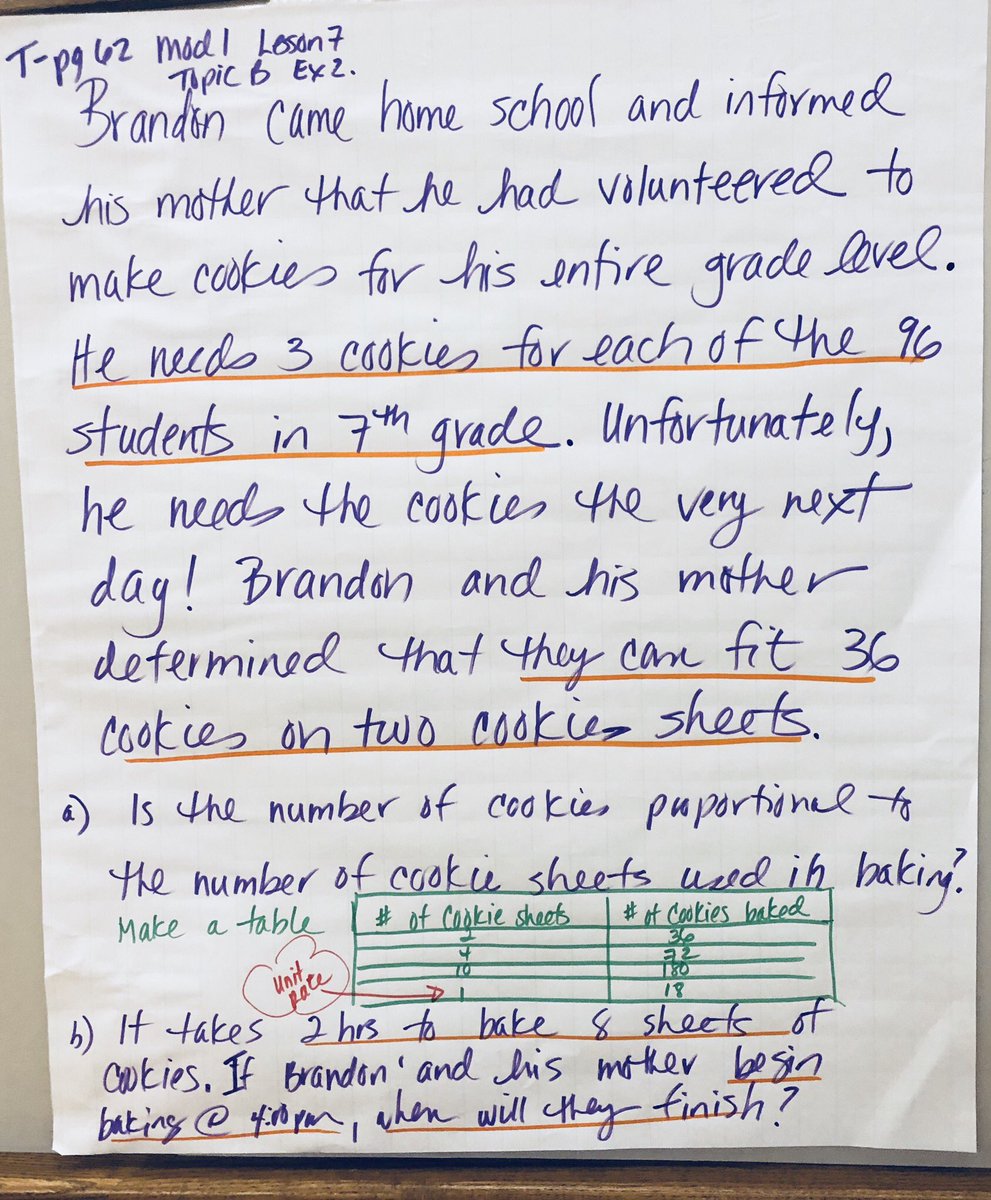 T-pg 62 Mod 1 Lesson 7
Topic B Ex 2.
Brandon came home school and informed
his mother that he had volunteered to
make cookies for his entire grade level.
He needs 3 cookies for each of the 96
students in 7th grade. Unfortunately,
he needs the cookies the very next
day! Brandon and his mother
determined that they can fit 36
cookies on two cookies sheets.
a) Is the number of cookies proportional to
the number of cookie sheets used in baking?
Make a table
# of Cookie sheets # of Cookies baked
2 36
4 72
10 180
1 18
Unit
Rate
b) It takes 2 hrs to bake 8 sheets of
cookies. If Brandon and his mother begin
baking @ 4:00 pm, when will they finish?